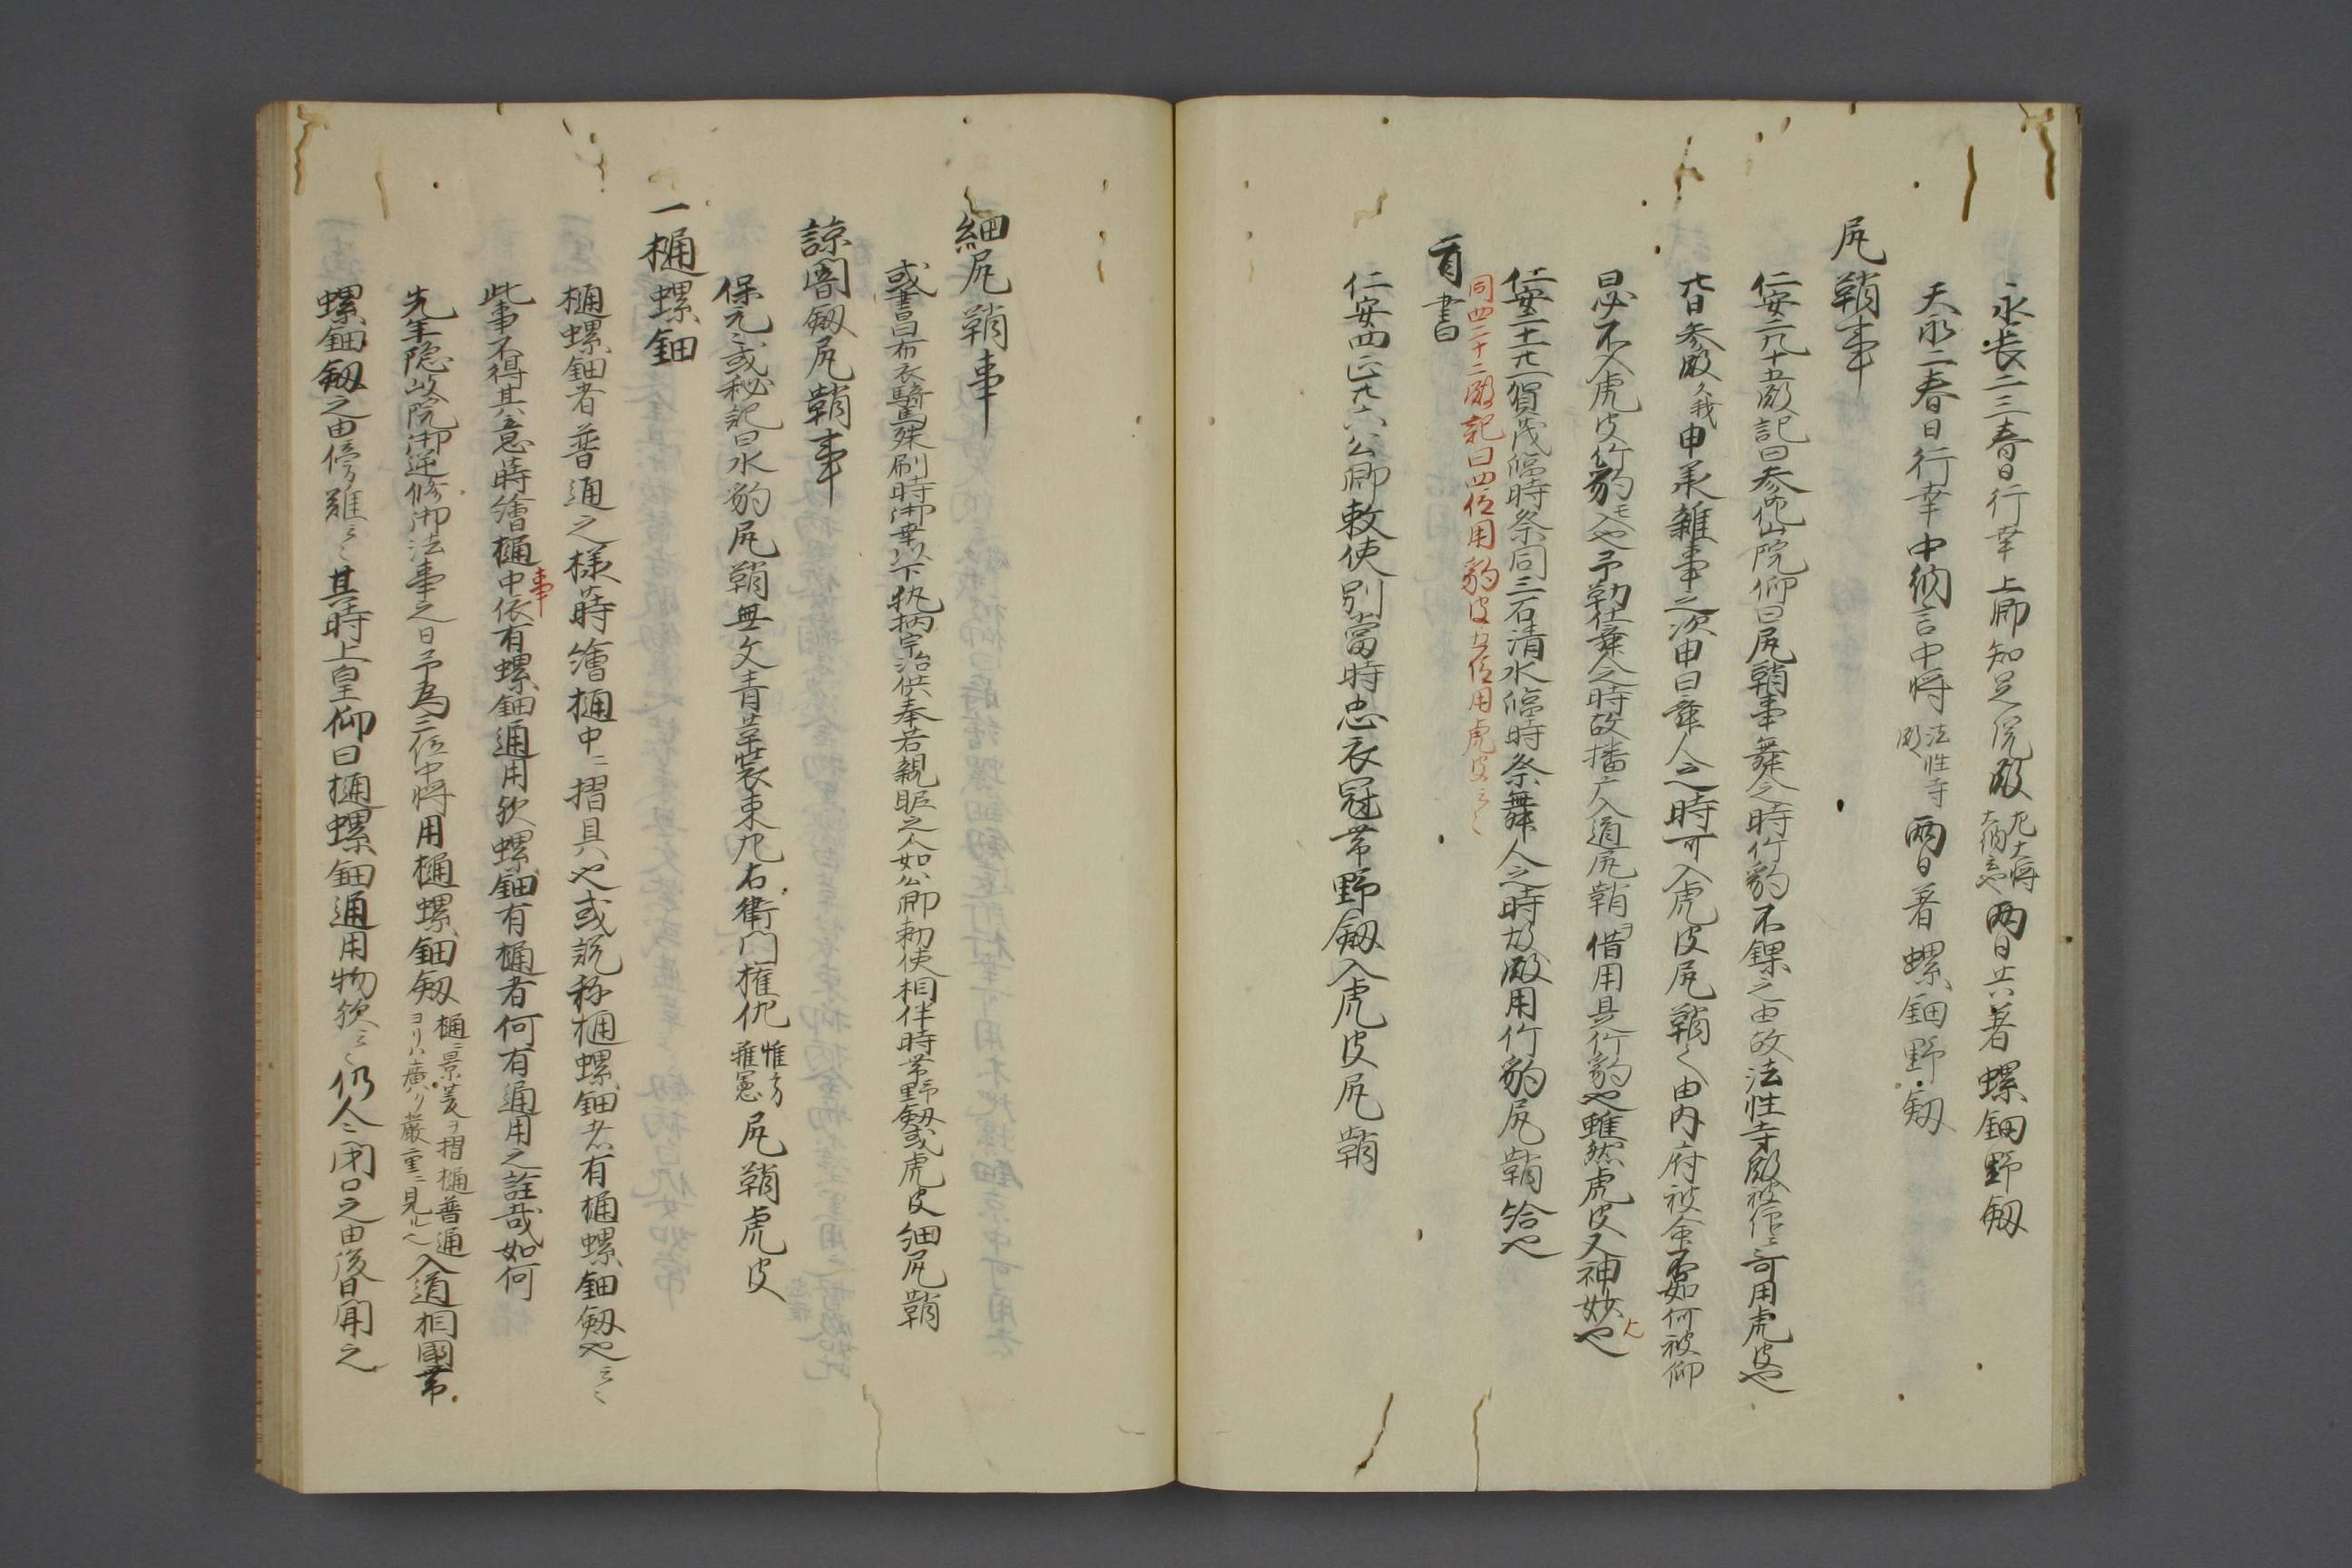 永長二三春日行幸上卿知足院殿左大将大納言也両日共著螺鈿野剱
天永二春日行幸中納言中将法性寺殿両日著螺鈿野剱
尻鞘事
仁安二九十五殿記曰参花山院仰曰尻鞘事舞人時竹豹不鏁之由故法性寺殿被信云可用虎皮也
廿日参殿久我申承雑事之次申曰舞人之時可入虎皮尻鞘之由内府被命云如何被仰
曰必不入虎皮竹豹モ入也予勤仕舞人之時故播广入道尻鞘ヲ借用具竹豹也雖然虎皮又神妙也
仁安二十廿一賀茂臨時祭同三石清水臨時祭舞人之時故殿用竹豹尻鞘給也
同四二十二殿記曰四位用豹皮五位用虎皮云々
育書
仁安四正廿六公卿敕使別當時忠衣冠帯野剱入虎皮尻鞘
細尻鞘事
或書曰布衣騎馬殊刷時御幸以下執柄宇治供奉若親昵之人如公卿勅使相伴時帯野剱或虎皮細尻鞘
諒闇剱尻鞘事
保元々或秘記曰水豹尻鞘無文青革装束左右衛門権佐惟方雅憲尻鞘虎皮
一樋螺鈿
樋螺鈿者普通之様蒔繪樋中ニ摺具也或説称樋螺鈿者有樋螺鈿剱也云々
此事不得其意蒔繪樋中依有螺鈿事通用欤螺鈿有樋者何有通用之詮哉如何
先年隠岐院御逆修御法事之日予為三位中将用樋螺鈿剱樋ニ景美ヲ摺樋普通ヨリハ廣クリ嚴重ニ見ル也入道相國帯
螺鈿剱之由傍難云々其時上皇仰曰樋螺鈿通用物欤云々仍人々閉口之由後日聞之